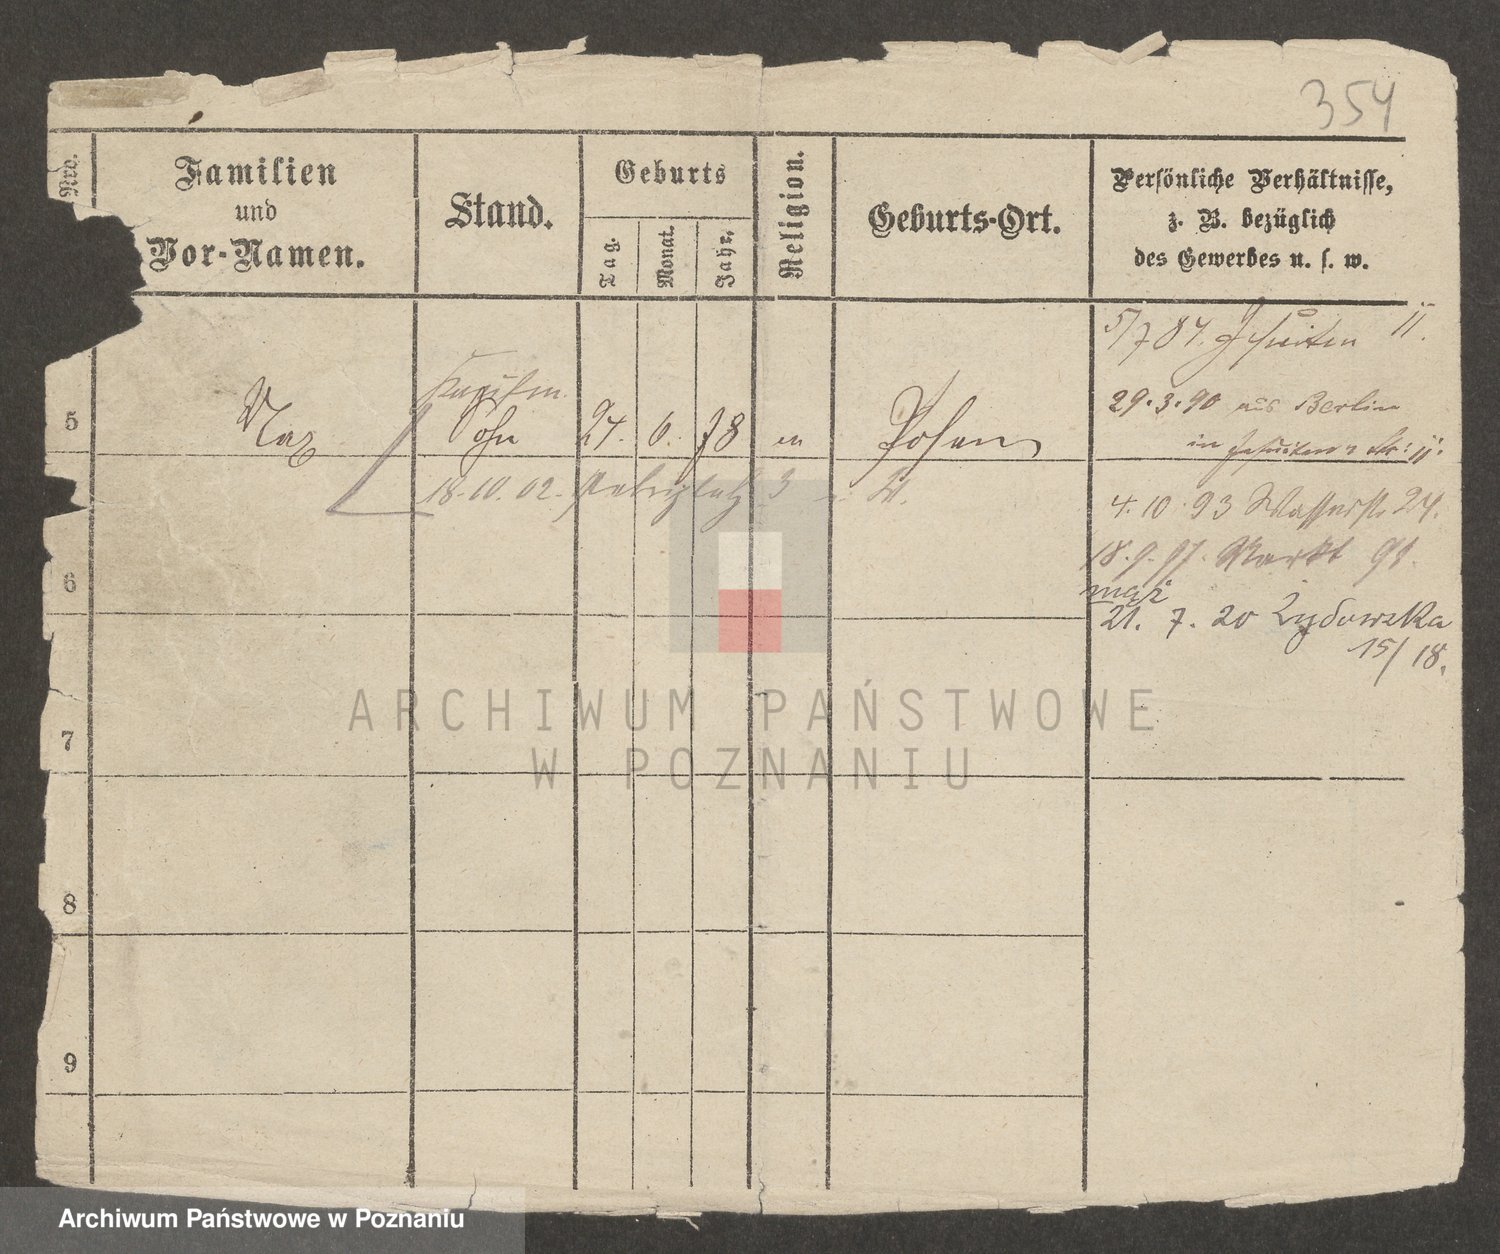 354
Nro.
Familien
und
Vor-Namen.
Stand.
Geburts
Tag.
Monat.
Jahr.
Religion.
Geburts-Ort.
Persönliche Verhältnisse,
z. B. bezüglich
des Gewerbes u. s. w.
5/7 84. Jesuiten 11.
29.3.90 aus Berlin
in Jesuiten 11.
5
Max
Sohn
24. 6. 78
Posen
18.10.02. 3
4.10.93 Wasserstr. 24.
18.9.97. Markt 91.
6
21. 7. 20 Żydowska
15/18.
7
8
9
ARCHIWUM PAŃSTWOWE
W POZNANIU
Archiwum Państwowe w Poznaniu